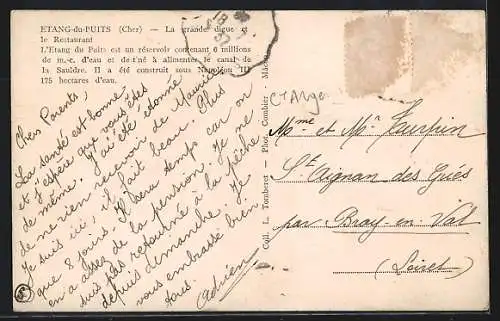 ETANG-du-PUITS (Cher) — La grande digue et
le Restaurant
L'Etang du Puits est un réservoir contenant 6 millions
de m.-c. d'eau et destiné à alimenter le canal de
la Sauldre. Il a été construit sous Napoléon III
175 hectares d'eau.
Chers Parents,
La santé est bonne
et j'espère que vous êtes
de même. J'ai été étonné
de ne rien recevoir de Maurice
Je suis ici, il fait beau. Plus
que 8 jours. Il sera temps car on
en a assez de la pension. Je ne
suis pas retourné à la pêche
depuis dimanche. Je
vous embrasse bien
tous.
Adrien
Coll. L. Tomberet - Photo Combier - Mâcon
Mme et Mr
St Aignan des Gués
par Bray-en-Val
(Loiret)